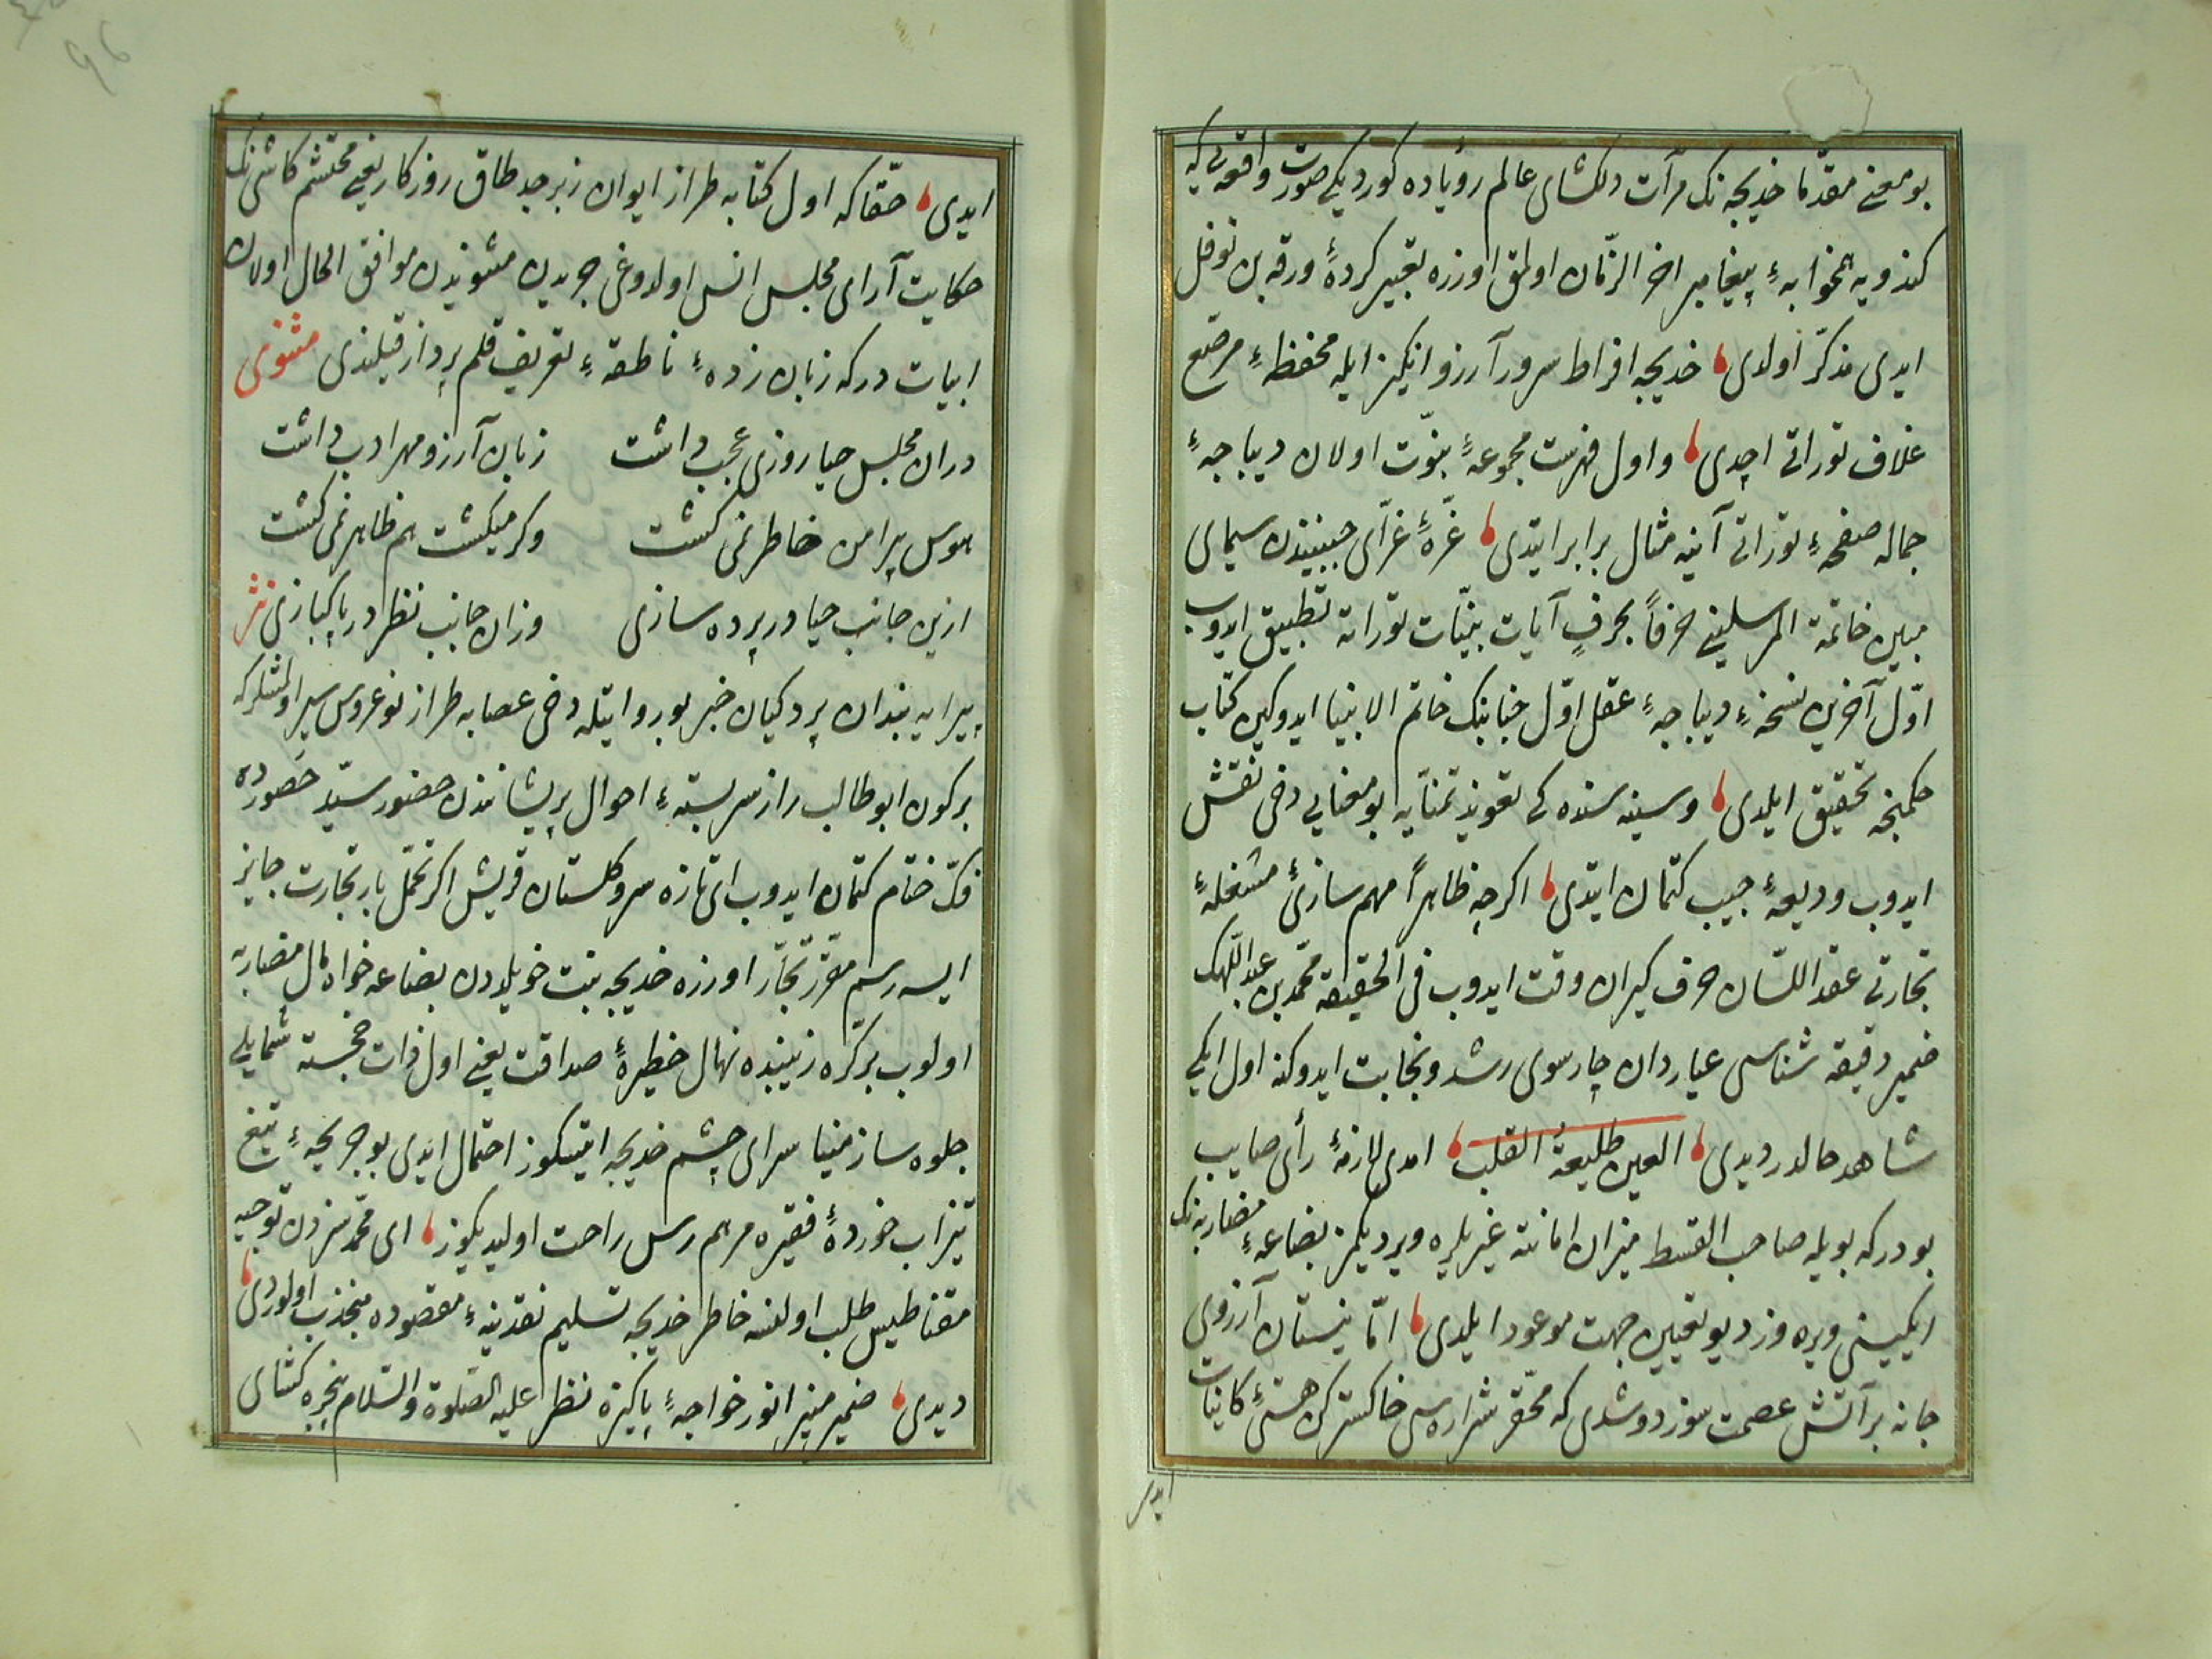 بو معنے مقدّما خدیجه نک مرآت دلکشای عالم رؤیاده کوردیکی صورت واقعه یی که
کندویه همخوابهٔ پیغامبر اخر الزّمان اولمق اوزره تعبیر کردهٔ ورقه بن نوفل
ایدی مذکّر اولدی خدیجه افراط سرور آرزو انکیز ایله محفظهٔ مرصّع
غلاف توراتی اچدی و اول فهرست مجموعهٔ نبوّت اولان دیباجهٔ
جماله صفحهٔ توراتی آینه مثال برابر ایتدی غرّهٔ غرّای جبینندن سیمای
مبین خاتمة المرسلینی حرفاً بحرفٍ آیات بیّنات توراته تطبیق ایدوب
اوّل آخرین نسخهٔ دیباجهٔ عقل اوّل جنابنک خاتم الانبیا ایدوکین کتاب
حکمنجه تحقیق ایلدی و سینه سنده کی تعویذ تمنّایه بو معنایی دخی نقش
ایدوب ودیعهٔ جیب کتمان ایتدی اکرچه ظاهراً مهم سازیٔ مشغلهٔ
تجارتی عقد اللسان حرف کیران وقت ایدوب فی الحقیقه محمّد بن عبد اللّهک
ضمیر دقیقه شناسی عیاردان چارسوی رشد و نجابت ایدوکنه اول ایکی
شاهد حالدر دیدی العین طلیعة القلب امدی لازمهٔ رأی صایب
بودرکه بویله صاحب القسط میزان امانته غیریلره ویردیکمز بضاعهٔ مضاربه نک
ایکیسنی ویره وز دیو تعیین جهت موعود ایلدی امّا نیستان آرزوی
جانه بر آتش عصمت سوز دوشدی که محقّر شراره سی خاکسترکن هستیٔ کاینات
ایدی
ایدی حقّا که اول کتابه طراز ایوان زبرجد طاق روزکار یعنی محتشم کاشینک
حکایت آرای مجلس انس اولدوغی جریدن مثنویدن موافق الحال اولان
ابیات درکه زبان زدهٔ ناطقهٔ تعریف قلم پرداز قیلندی مثنوی
دران مجلس حیا روزی عجب داشت زبان آرزو مهر ادب داشت
هوس پیرامن خاطر نمی کشت وکر میکشت هم ظاهر نمی کشت
ازین جانب حیا در پرده سازی وزان جانب نظر در پاکبازی نثر
پیرایه بندان پردکیان خبر بو روایتله دخی عصابه طراز نوعروس سیر اولمشلر که
بر کون ابو طالب راز سربستهٔ احوال پریشانندن حضور سیّد حَصورده
فکّ ختام کتمان ایدوب ای تازه سرو کلستان قریش اکر تحمّل بار تجارت جایز
ایسه رسم مقرّر تجّار اوزره خدیجه بنت خویلددن بضاعه خواه مال مضاربه
اولوب بر کرّه زیبنده نهال خطیرهٔ صداقت یعنی اول ذات خجسته شمایلی
جلوه ساز مینا سرای چشم خدیجه ایتسکوز احتمال ایدی بو جریحهٔ تیغ
تیز اب خوردهٔ فقیره مرهم رس راحت اولیدیکوز ای محمّد سزدن توجیه
مقناطیس طلب اولنسه خاطر خدیجه تسلیم نقدینهٔ مقصوده منجذب اولوردی
دیدی ضمیر منیر انور خواجهٔ پاکیزه نظر علیه الصّلوة والسّلام پنجره کشای